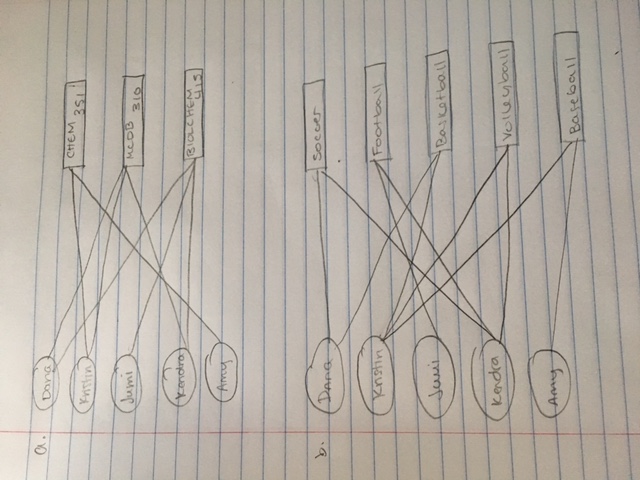 a.
Dana
Kristin
Jumi
Kendra
Amy
CHEM
351
MCDB
310
BIOLCHEM
415
b.
Dana
Kristin
Jumi
Kendra
Amy
Soccer
Football
Basketball
Volleyball
Baseball